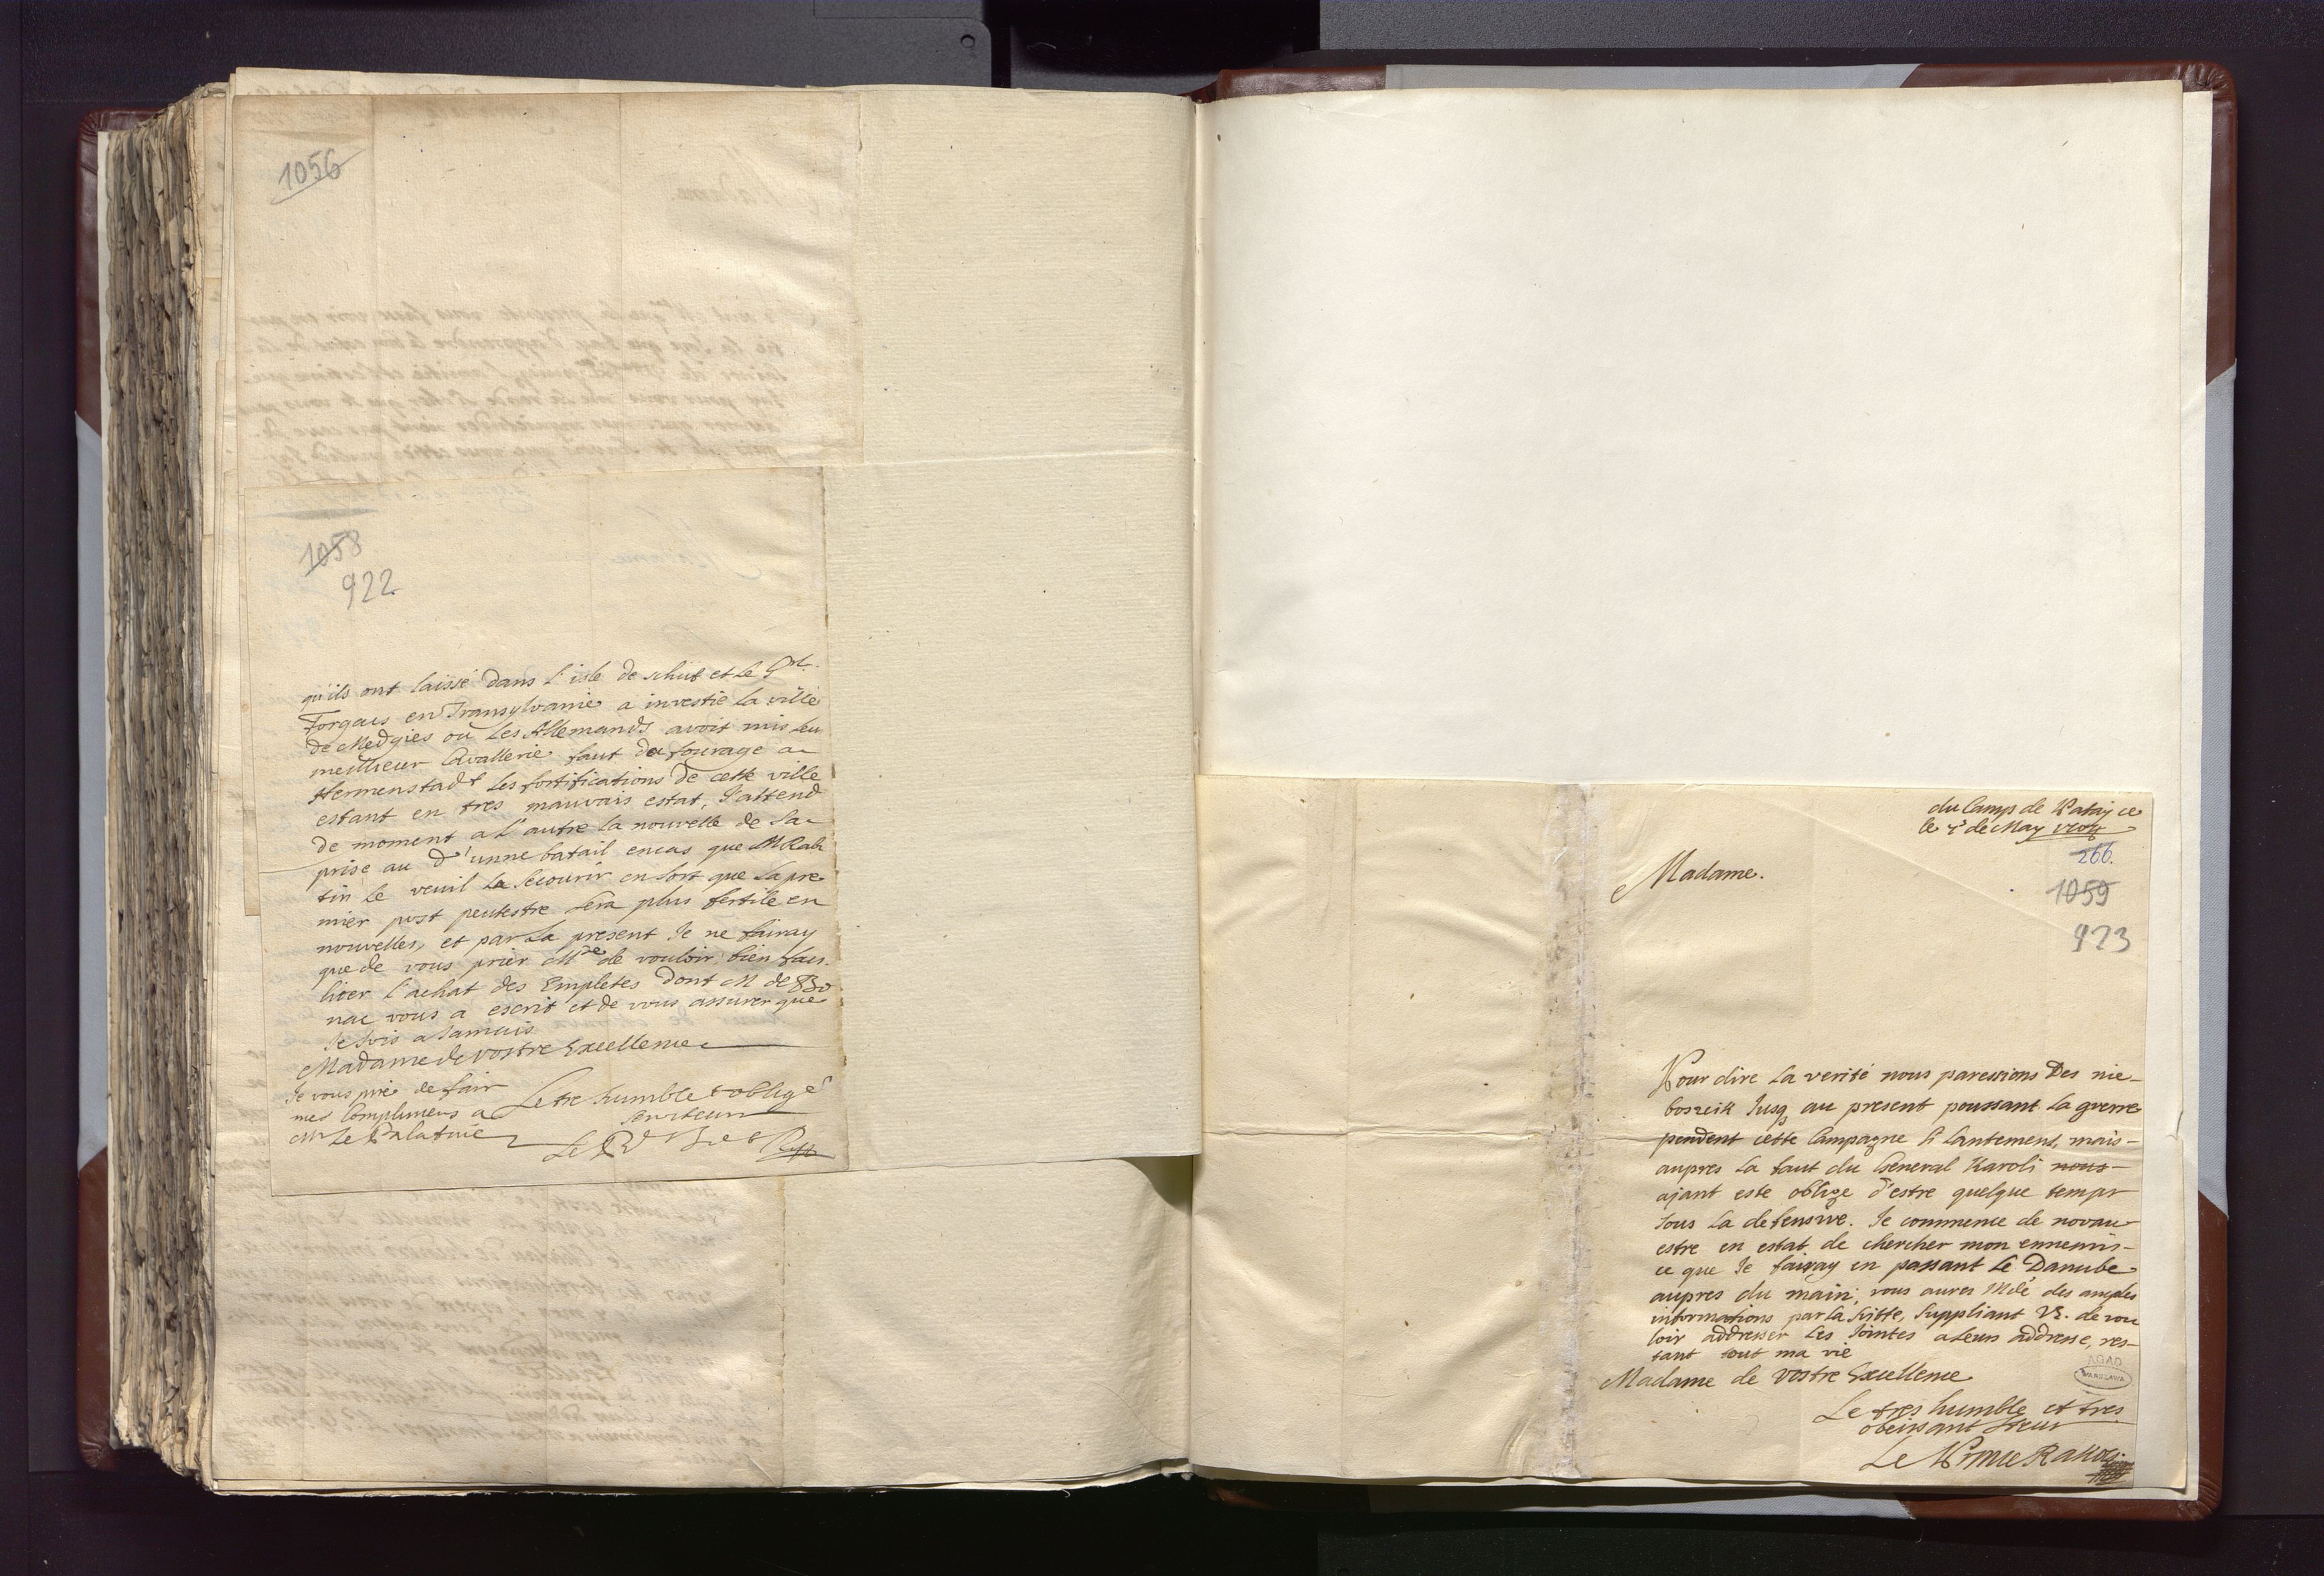 1056
1058
922
qu'ils ont laissé dans l'isle de schut et le Gnl.
Forgacs en Transylvanie a investie la ville
de Medgies ou les Allemands avoit mis leu
meillieur Cavallerie faut de fourage a
Hermenstadt les fortifications de cette ville
estant en tres mauvais estat, J'attend
de moment a l'autre la nouvelle de sa
prise au d'unne batail encas que M Rab
tin le veuil la secourir en sort que la pre
mier post peutestre sera plus fertile en
nouvelles, et par la present Je ne fairay
que de vous prier Mde de vouloir bien fac
liter l'achat des Empletes dont M de Bo
nac vous a escrit et de vous assurer que
Je suis a Jamais
Madame de vostre Excellence
Je vous prie de fair
mes Complimens a
Mr Le Palatine
Le tre humble et obligé
serviteur
Le
du Camp de Patay ce
le de May
266.
1059
923
Madame.
Pour dire la verité nous paressions Des nie-
boszcik Jusq au present poussant la guerre
pendent cette Campagne si lantement, mais
aupres la faut du General Karoli nous
ajant este oblige d'estre quelque temps
sous la defensive. Je commence de novau
estre en estat de chercher mon ennemis
ce que Je fairay en passant le Danube
aupres du main, vous aures Mde des amples
informations par la suitte, suppliant VE. de vou
loir addresser les Jointes a leurs addresse, res-
tant tout ma vie
Madame de vostre Excellence
Le tres humble et tres
obeissant
Le Prince Rakoci
AGAD
WARSZAWA